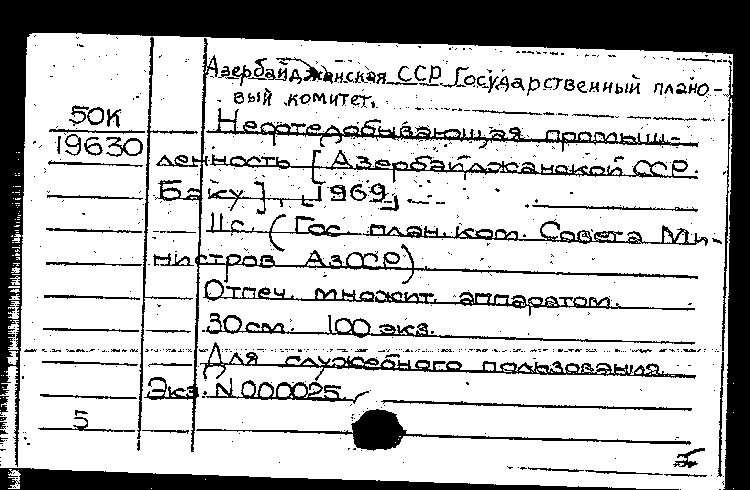 Азербайджанская ССР Государственный плано-
вый комитет.
50К Нефтедобывающая промыш-
19630 ленность [Азербайджанской ССР.
Баку], [1969].
11с. (Гос. план. ком. Совета Ми-
нистров АзССР).
Отпеч. множит. аппаратом.
30 см. 100 экз.
Для служебного пользования.
Экз. N 000025.
5